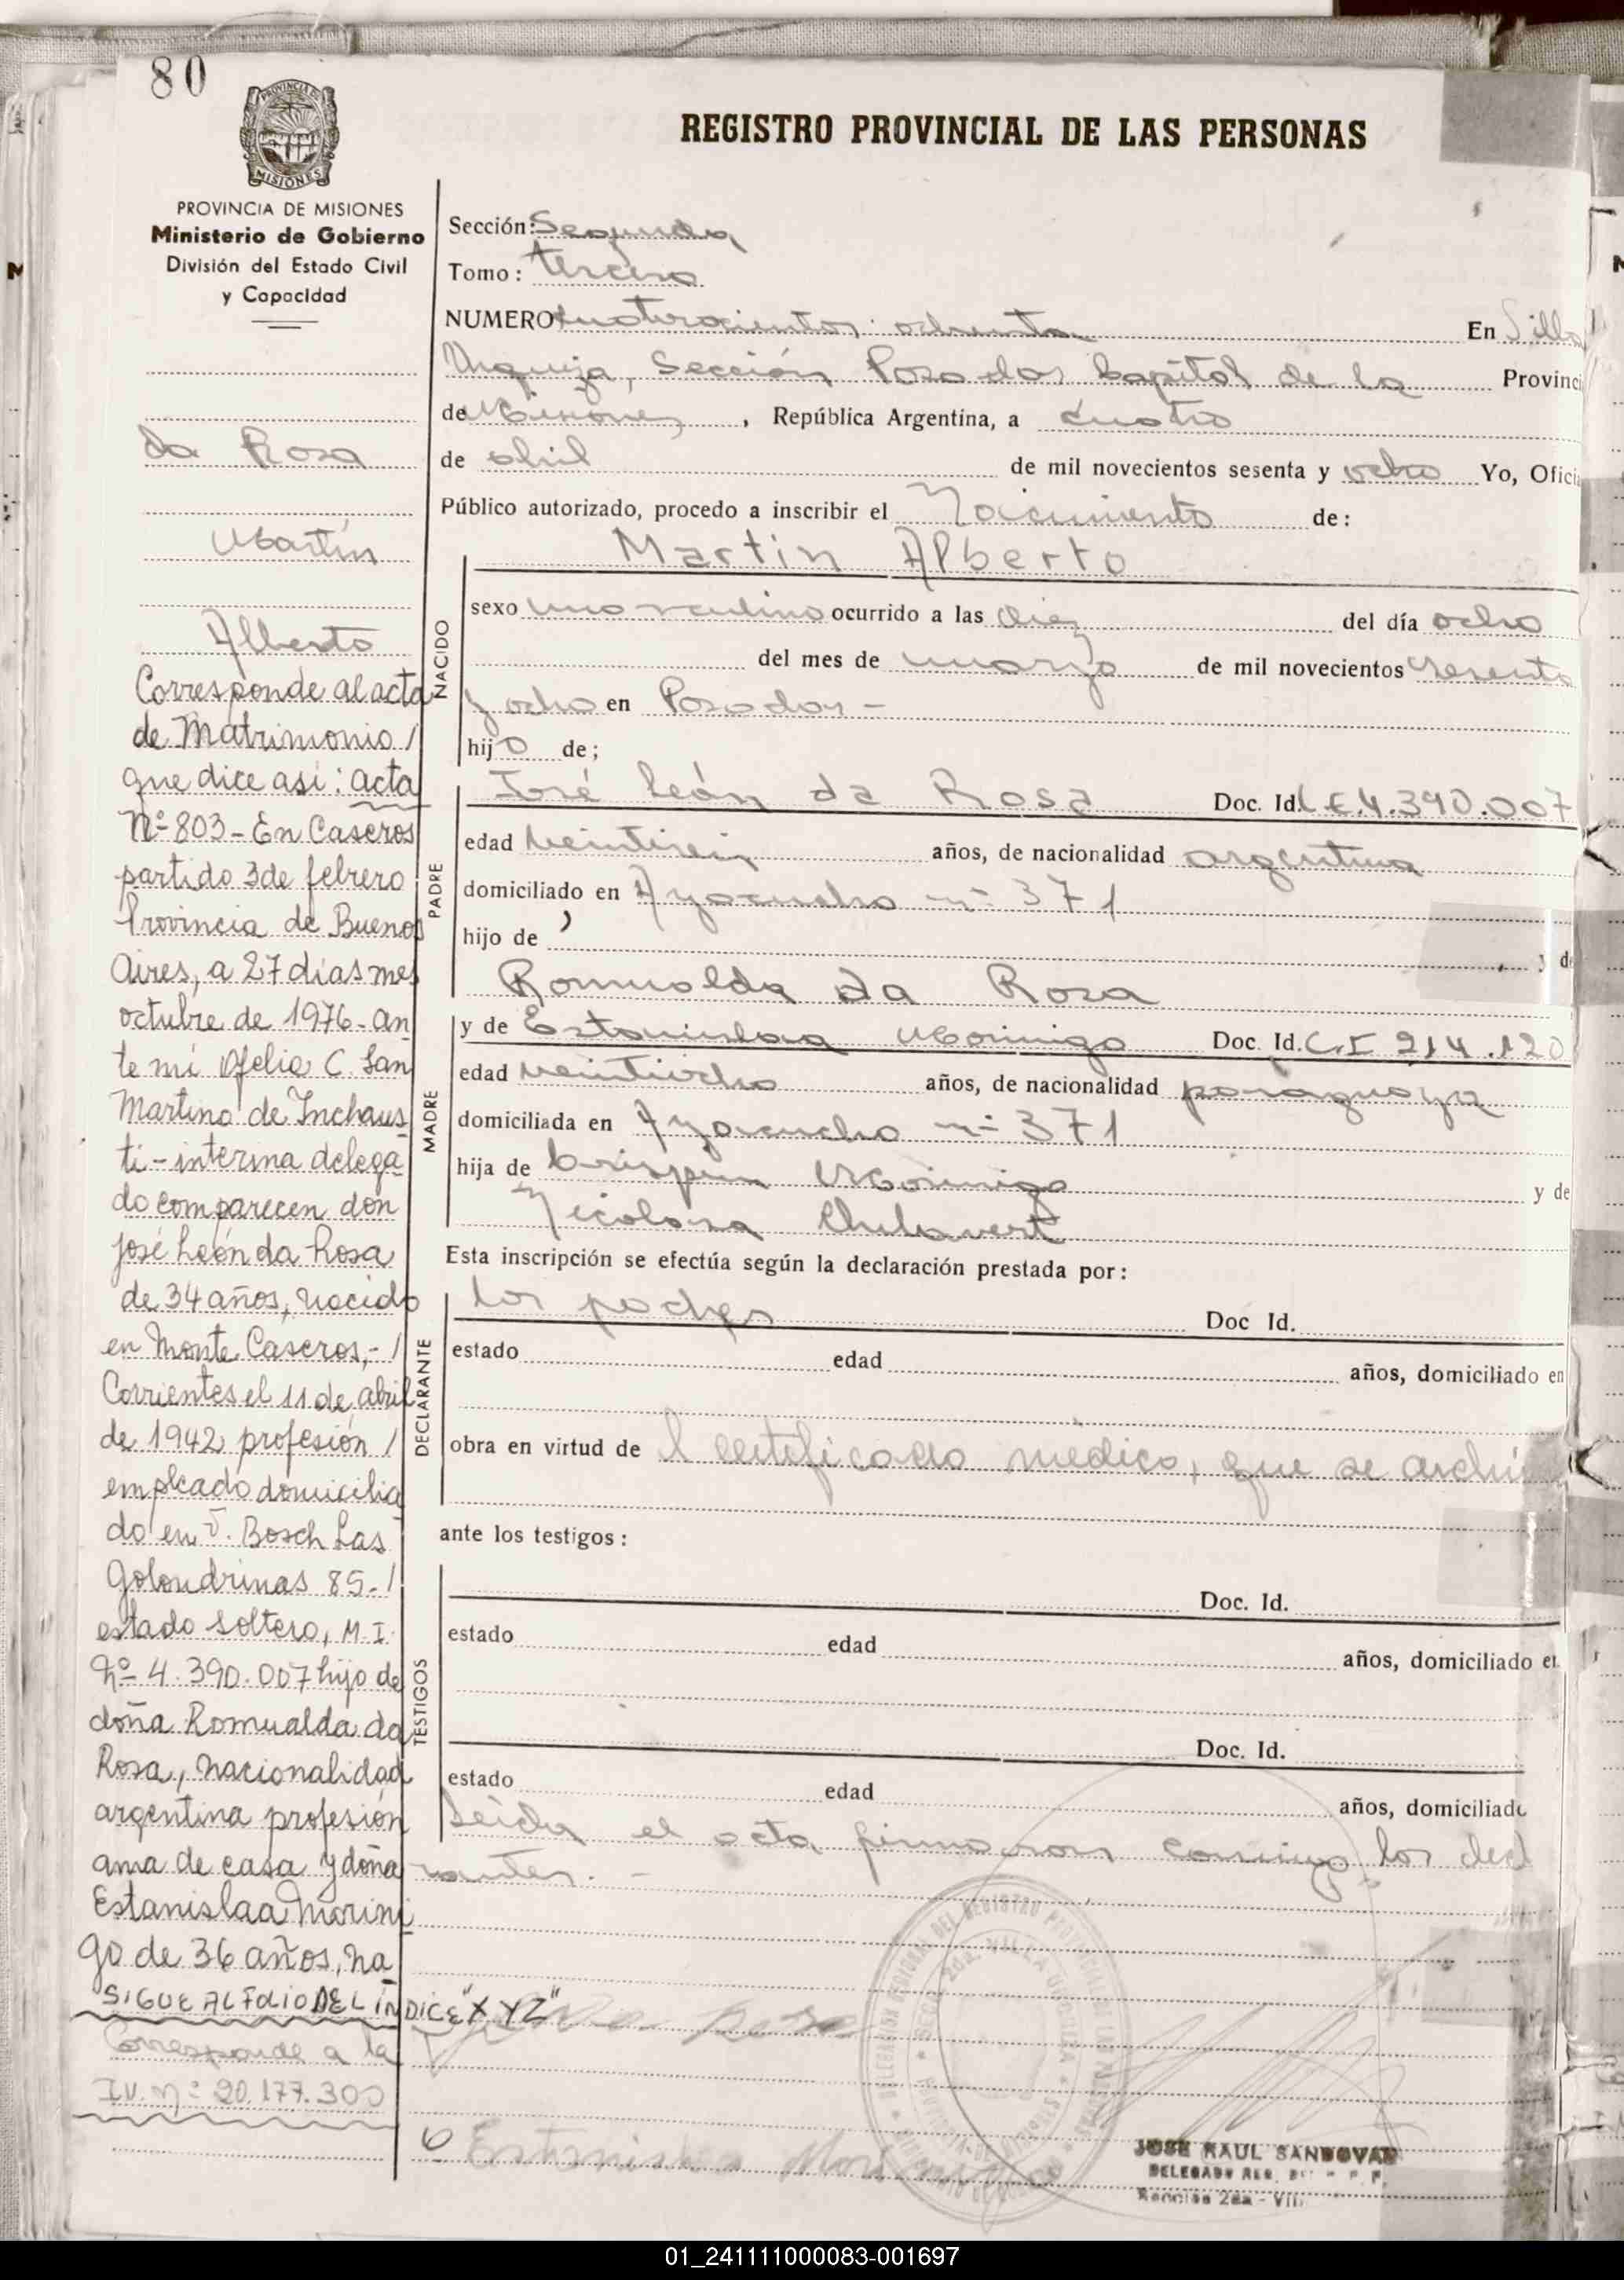 80
REGISTRO PROVINCIAL DE LAS PERSONAS
PROVINCIA DE MISIONES
MISIONES
PROVINCIA DE MISIONES
Ministerio de Gobierno
División del Estado Civil
y Capacidad
da Rosa
Martín
Alberto
Corresponde al acta
de Matrimonio /
que dice asi: acta
Nº 803 - En Caseros
partido 3 de febrero
Provincia de Buenos
Aires, a 27 días mes
octubre de 1976 - an
te mi Ofelia C. San
Martino de Inchaus
ti - interina delega
do comparecen don
José León da Rosa
de 34 años, nacido
en Monte Caseros, - /
Corrientes el 11 de abril
de 1942 profesión /
empleado domicilia
do en J. Bosch Las
Golondrinas 85 - /
estado soltero, M. I.
Nº 4.390.007 hijo de
doña Romualda da
Rosa, nacionalidad
argentina profesión
ama de casa y doña
Estanislaa Morini
go de 36 años, na
SIGUE AL FOLIO DEL INDICE "XYZ"
Corresponde a la
Nº 20.177.300
Sección: Segunda
Tomo: tercero
NUMERO cuatrocientos ochenta En Villa
Urquiza, Sección Posadas Capital de la Provinci
de Misiones, República Argentina, a cuatro
de abril de mil novecientos sesenta y ocho Yo, Ofici
Público autorizado, procedo a inscribir el Nacimiento de:
NACIDO
Martin Alberto
sexo masculino ocurrido a las diez del día ocho
del mes de marzo de mil novecientos sesenta
y ocho en Posadas -
hijo de;
PADRE
José León da Rosa Doc. Id. L.E. 4.390.007
edad veintiseis años, de nacionalidad argentina
domiciliado en Ayacucho nº 371
hijo de y de
Romualda da Rosa
MADRE
y de Estanislaa Morinigo Doc. Id. C.I 214.120
edad veintiocho años, de nacionalidad paraguaya
domiciliada en Ayacucho nº 371
hija de Crispin Morinigo y de
Nicolasa Chilavert
Esta inscripción se efectúa según la declaración prestada por:
DECLARANTE
los padres Doc Id.
estado edad años, domiciliado en
obra en virtud de l certificado médico, que se archi
ante los testigos:
TESTIGOS
Doc. Id.
estado edad años, domiciliado en
Doc. Id.
estado edad años, domiciliado
Leida el acta firmaron conmigo los decl
rantes. -
da Rosa
Estanislaa Morinigo
DELEGACION REGIONAL DEL REGISTRO PROVINCIAL DE LAS PERSONAS
VILLA URQUIZA
JOSE RAUL SANDOVAL
DELEGADO REG.
Sección 2da - Vill
01_241111000083-001697